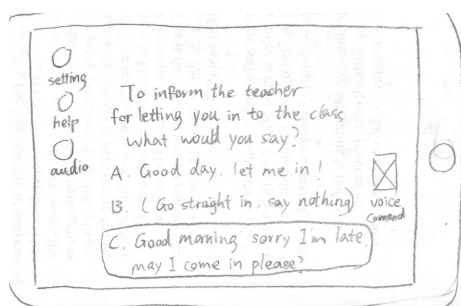 setting
help
audio
To inform the teacher
for letting you in to the class
what would you say?
A. Good day. let me in!
B. (Go straight in, say nothing)
C. Good morning. sorry I'm late
may I come in please?
voice
Comend